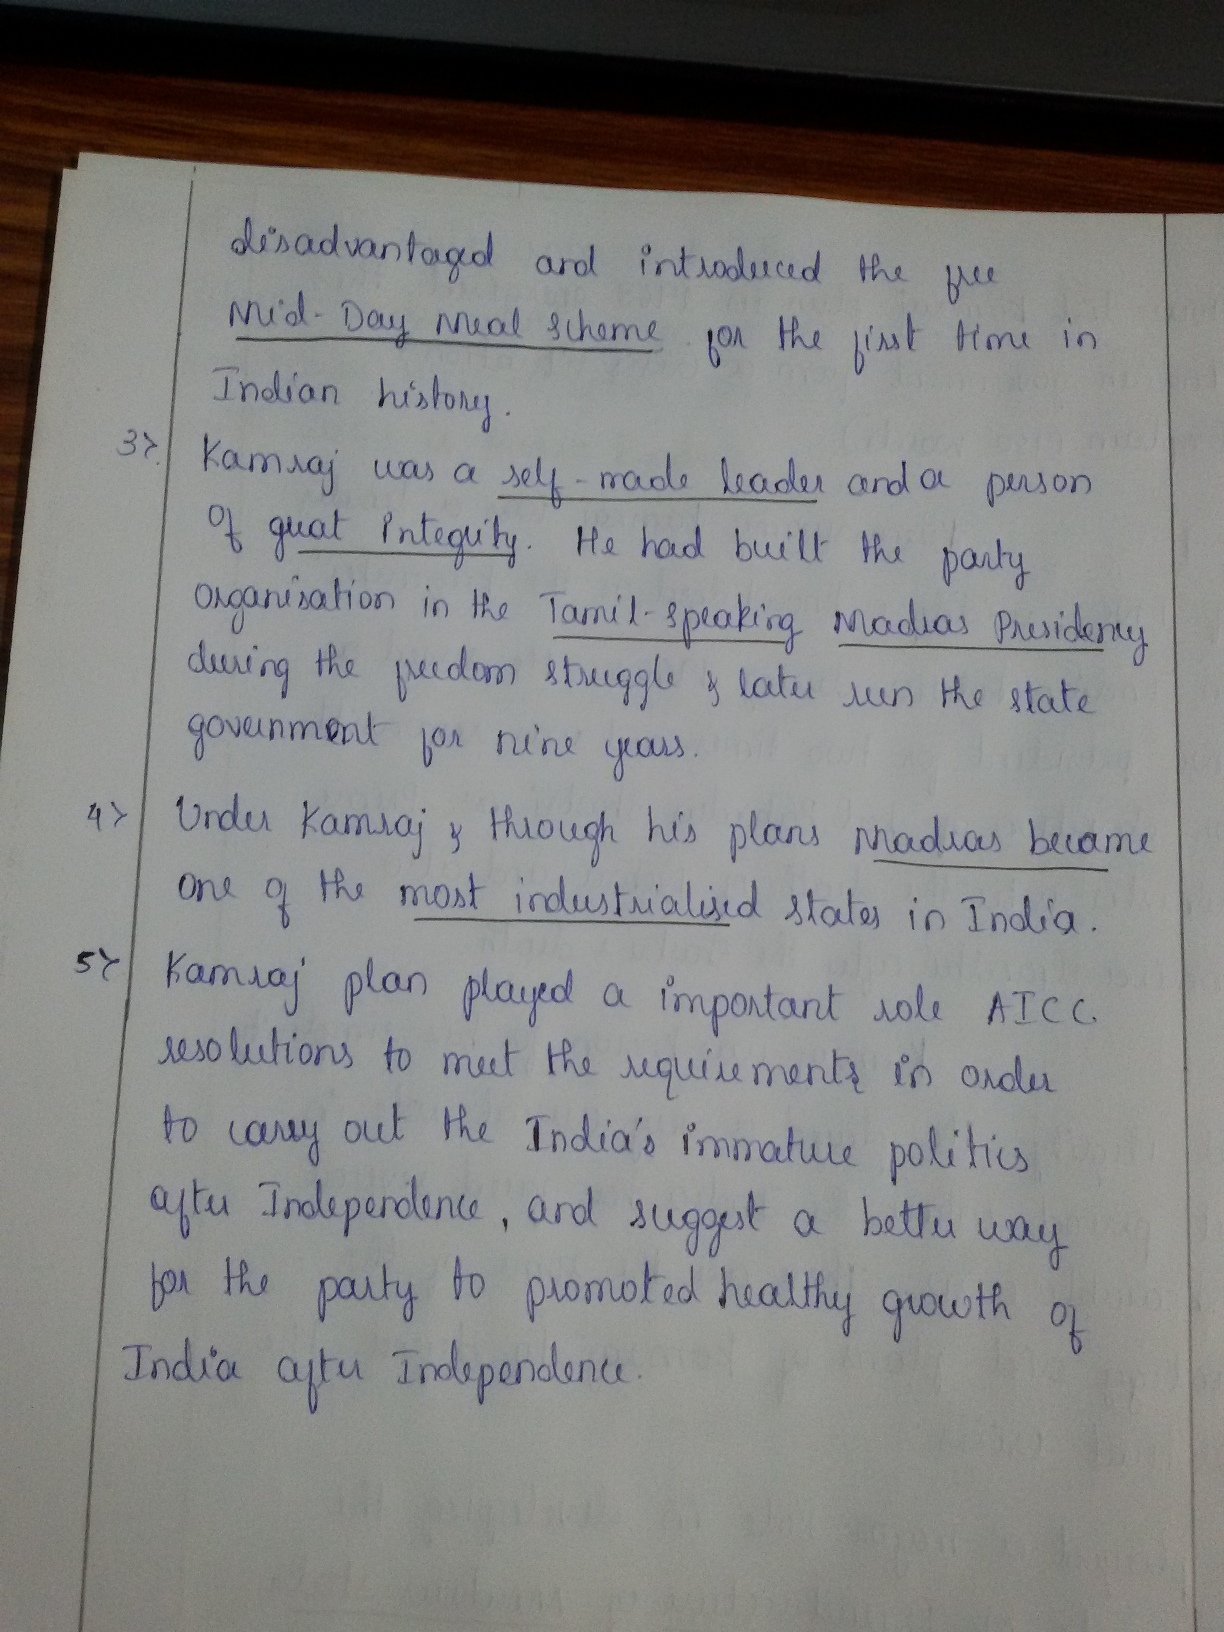 disadvantaged and introduced the free
Mid-Day Meal Scheme for the first time in
Indian history.
3> Kamraj was a self-made leader and a person
of great Integrity. He had built the party
organisation in the Tamil-speaking Madras Presidency
during the freedom struggle & later run the state
government for nine years.
4> Under Kamraj & through his plans Madras became
one of the most industrialised states in India.
5> Kamraj plan played a important role AICC
resolutions to meet the requirements in order
to carry out the India's immature politics
after Independence, and suggest a better way
for the party to promoted healthy growth of
India after Independence.